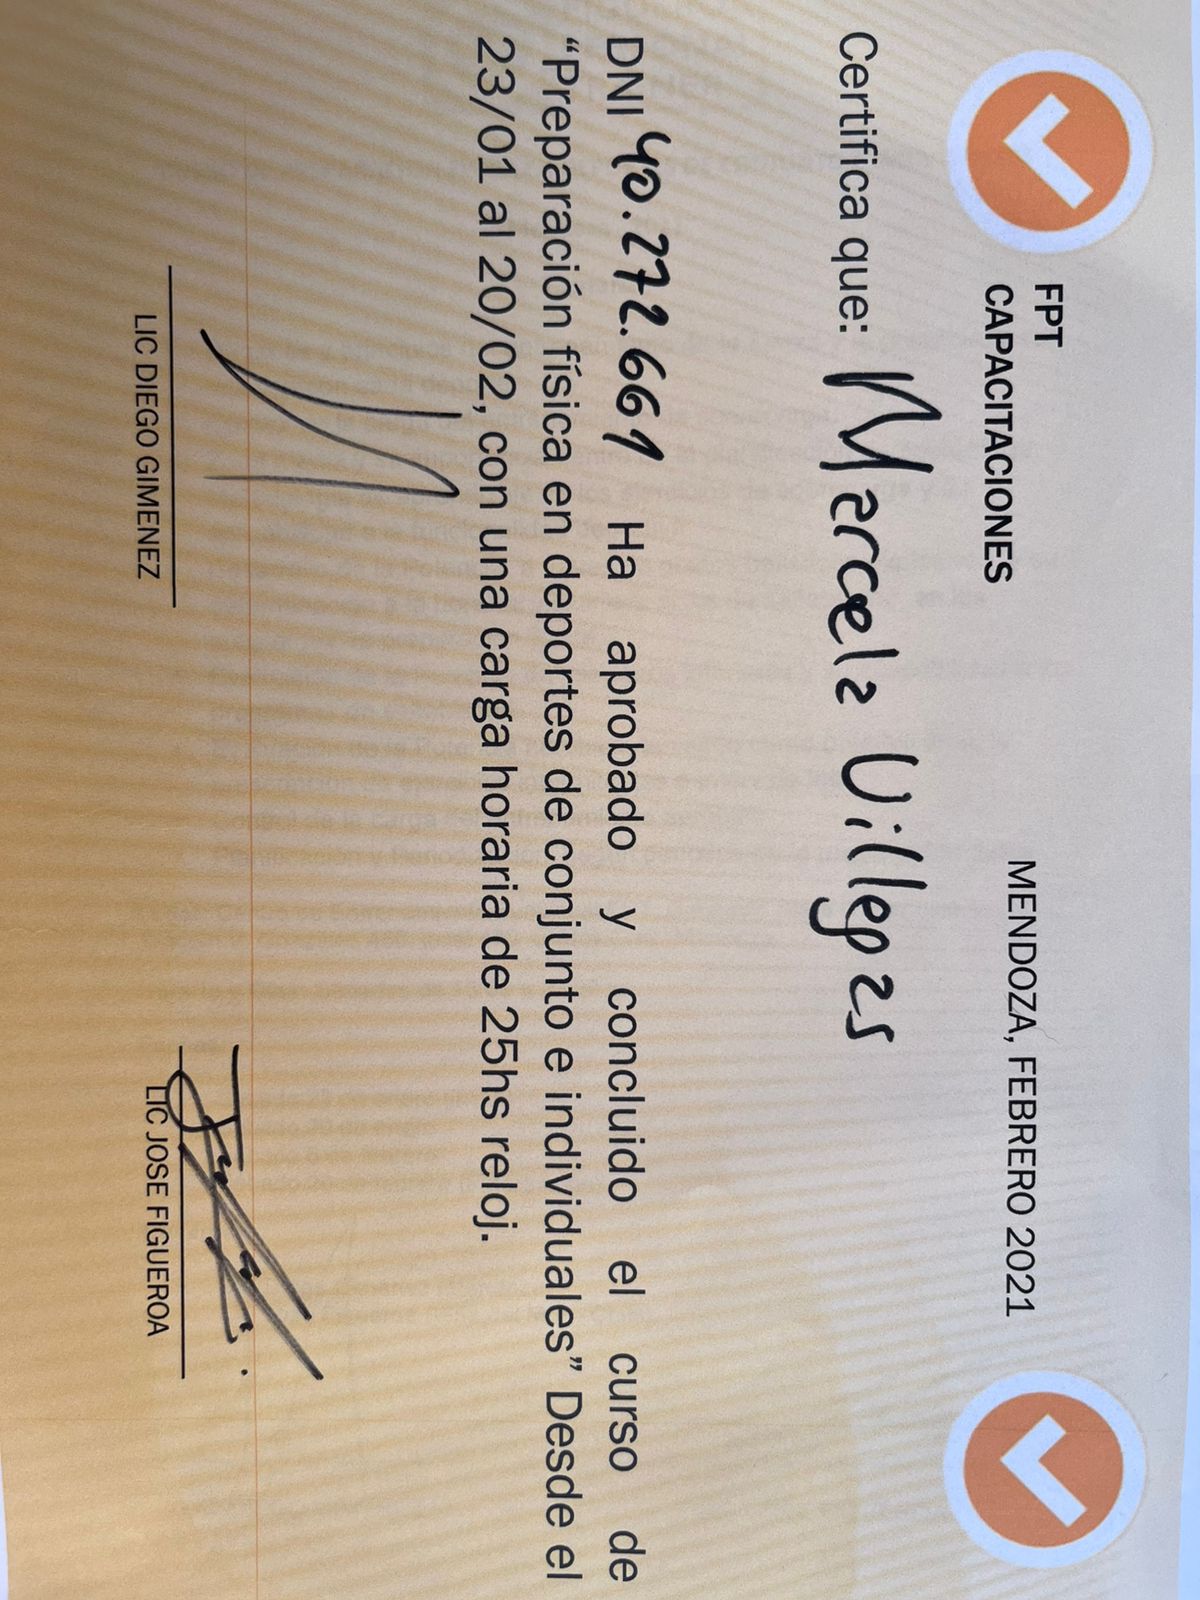 FPT
CAPACITACIONES
MENDOZA, FEBRERO 2021
Certifica que: Marcela Villegas
DNI 40.272.661 Ha aprobado y concluido el curso de
“Preparación física en deportes de conjunto e individuales” Desde el
23/01 al 20/02, con una carga horaria de 25hs reloj.
LIC DIEGO GIMENEZ
LIC JOSE FIGUEROA